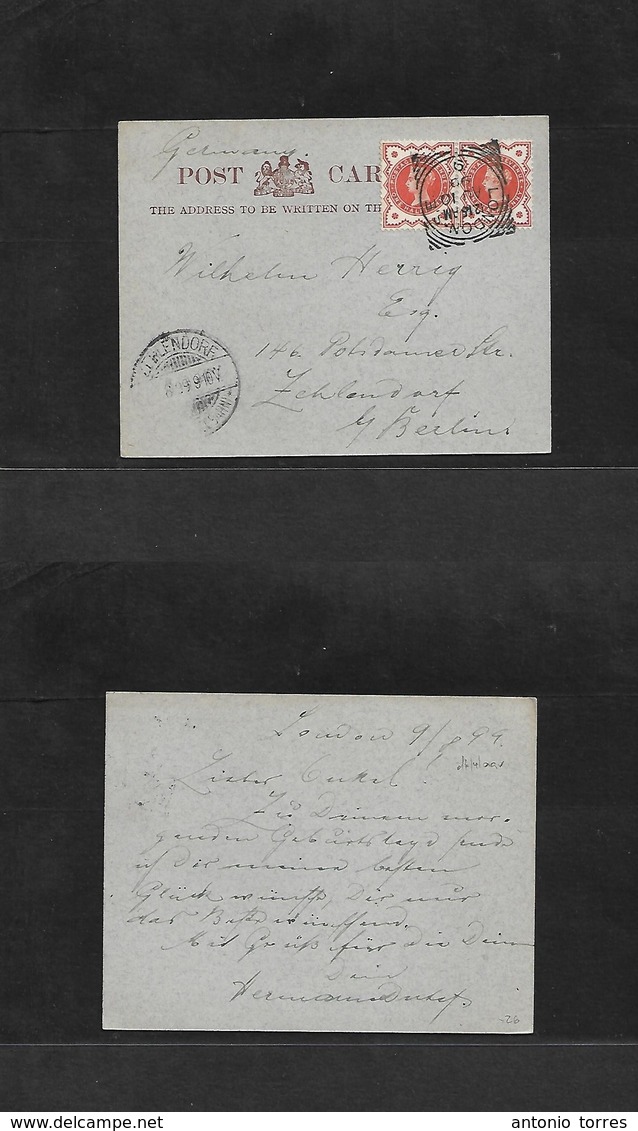 Germany.
POST CAR
THE ADDRESS TO BE WRITTEN ON TH
LONDON
Wilhelm Herrig
Esq.
146. Potsdamer Str.
Zehlendorf
b/ Berlin
ZEHLENDORF
London 9/8 99.
Lieber Onkel!
Zu Deinem mor-
genden Geburtstage sende
ich Dir meine besten
Glückwünsche, Dir nur
das Beste wünschend.
Mit Gruß für die Deinen
Dein
Hermann
antonio torres